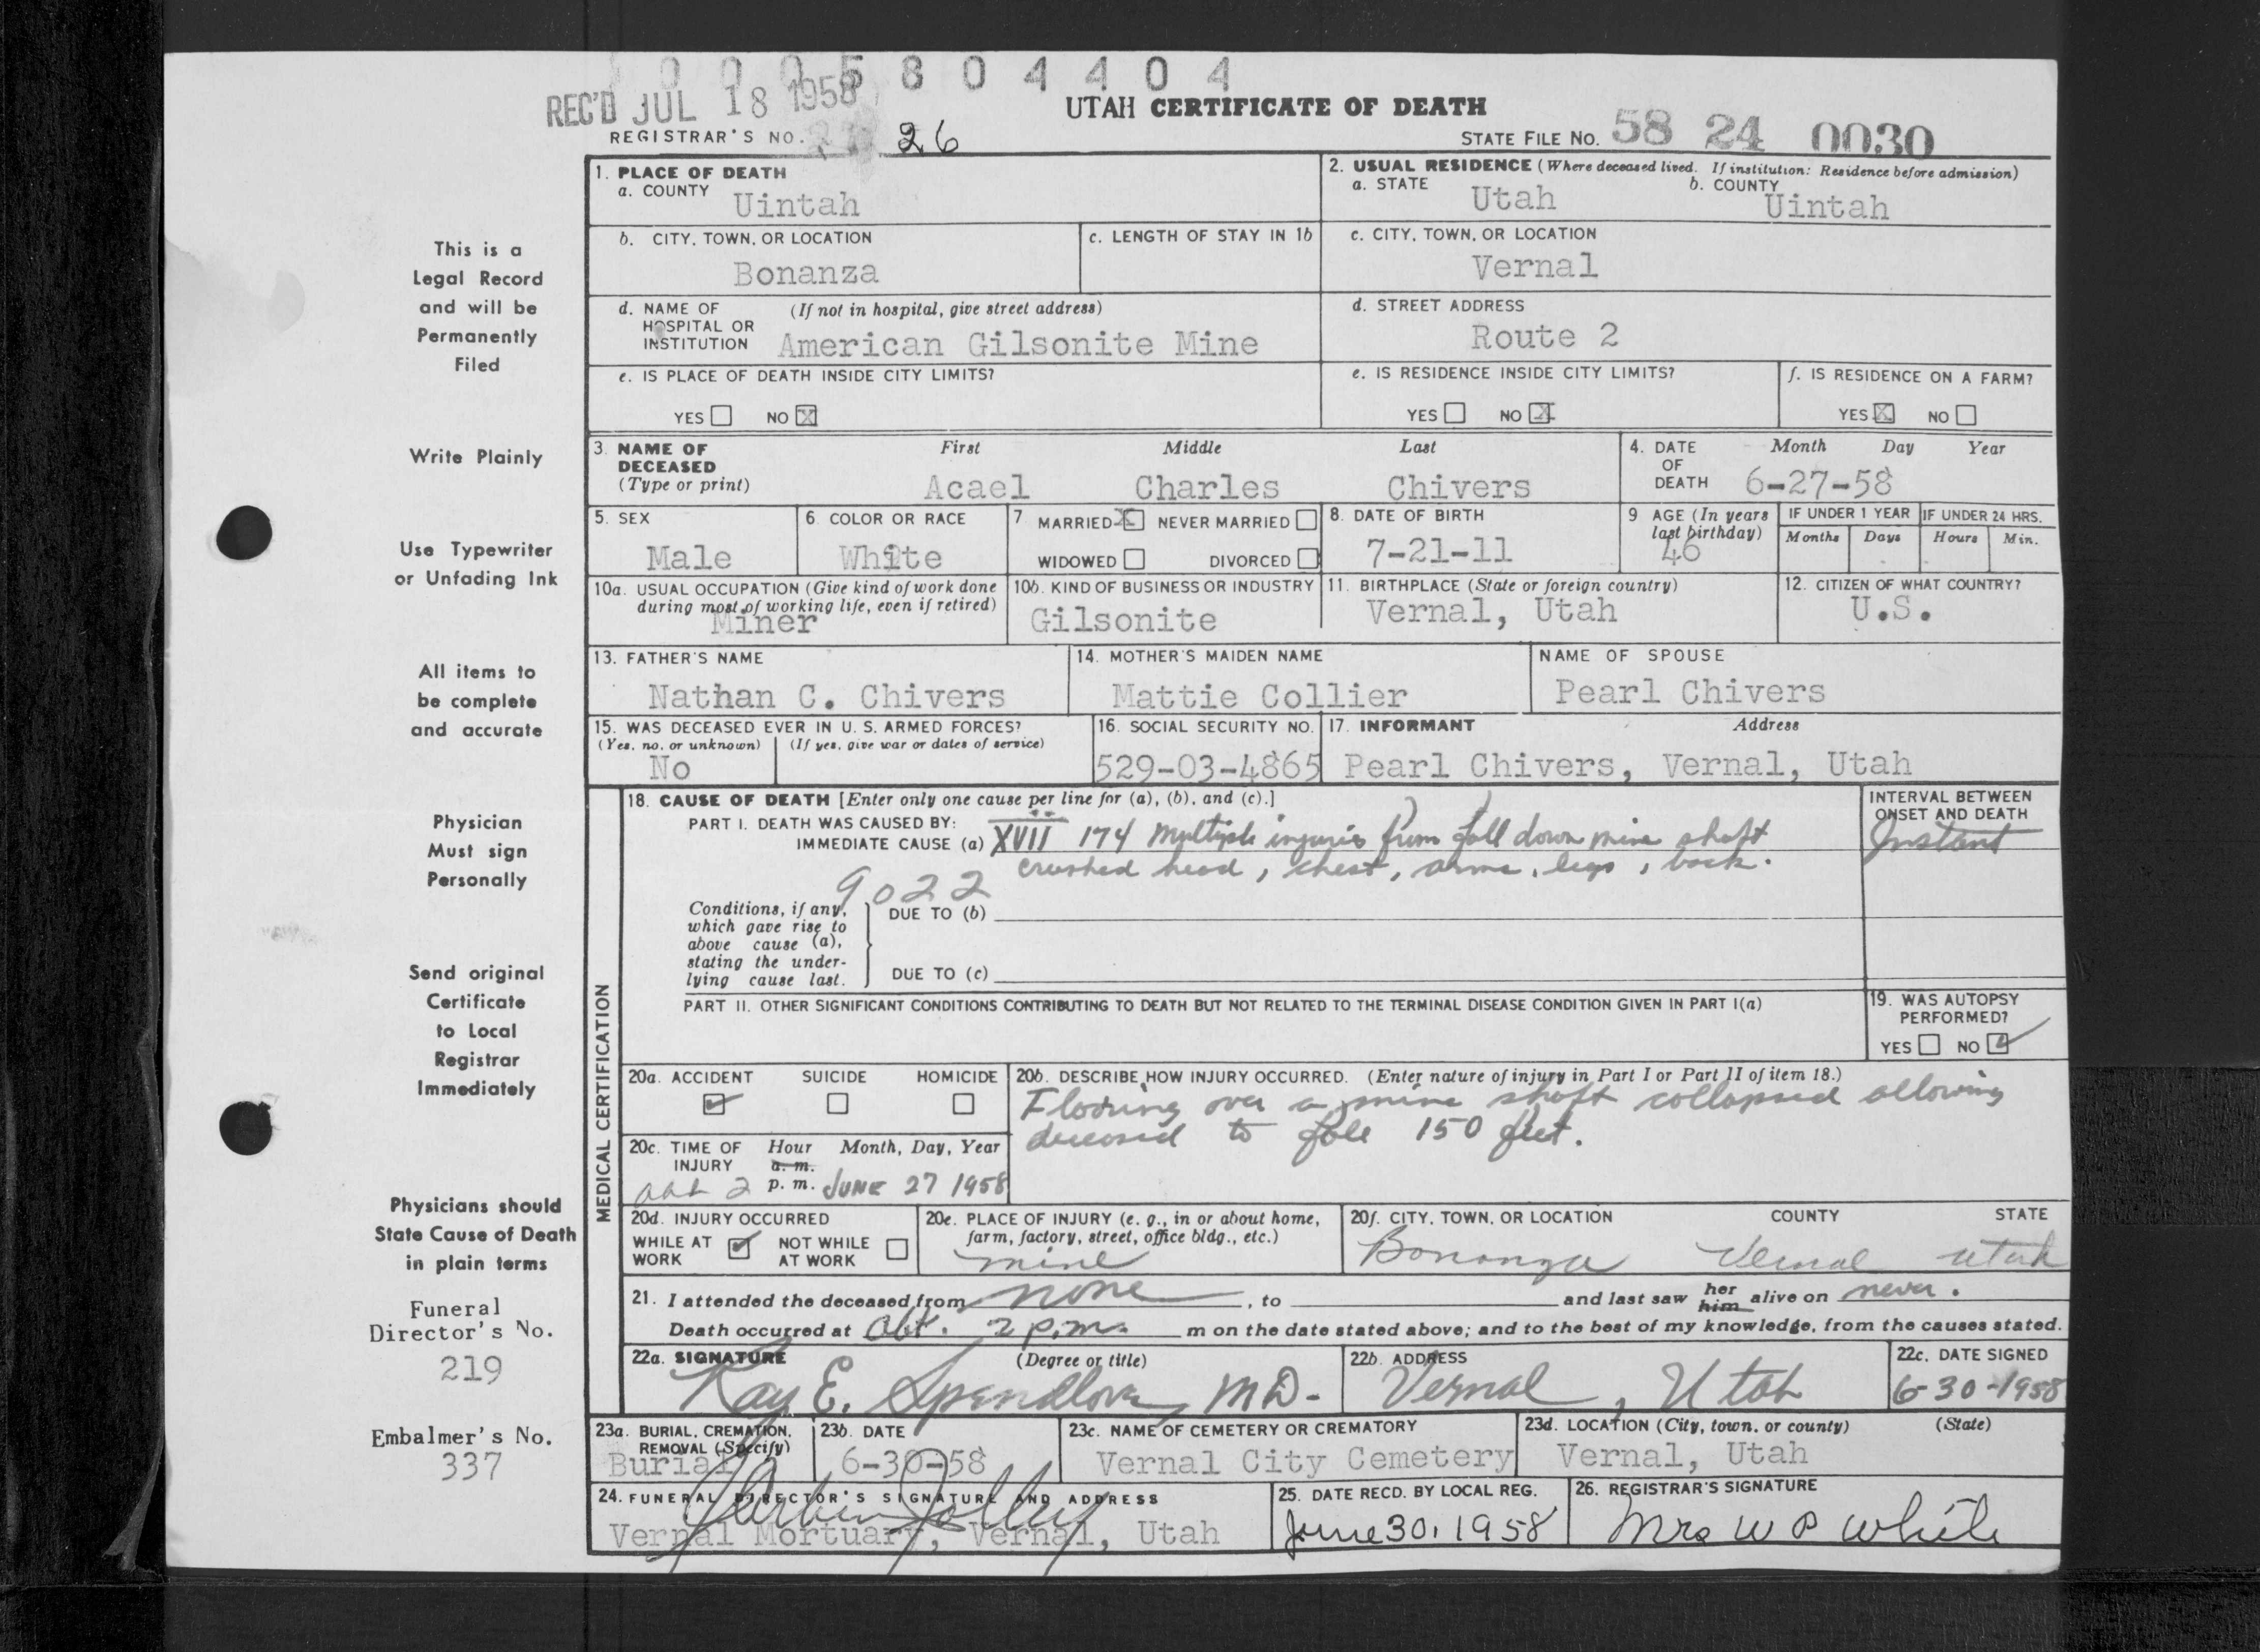 0 0 0 5 8 0 4 4 0 4
REC'D JUL 18 1958
UTAH CERTIFICATE OF DEATH
REGISTRAR'S NO. 26
STATE FILE NO. 58 24 0030
This is a
Legal Record
and will be
Permanently
Filed
Write Plainly
Use Typewriter
or Unfading Ink
All items to
be complete
and accurate
Physician
Must sign
Personally
Send original
Certificate
to Local
Registrar
Immediately
Physicians should
State Cause of Death
in plain terms
Funeral
Director's No.
219
Embalmer's No.
337
1. PLACE OF DEATH
a. COUNTY Uintah
2. USUAL RESIDENCE (Where deceased lived. If institution: Residence before admission)
a. STATE Utah b. COUNTY Uintah
b. CITY, TOWN, OR LOCATION
Bonanza
c. LENGTH OF STAY IN 1b
c. CITY, TOWN, OR LOCATION
Vernal
d. NAME OF (If not in hospital, give street address)
HOSPITAL OR
INSTITUTION American Gilsonite Mine
d. STREET ADDRESS
Route 2
e. IS PLACE OF DEATH INSIDE CITY LIMITS?
YES NO X
e. IS RESIDENCE INSIDE CITY LIMITS?
YES NO X
f. IS RESIDENCE ON A FARM?
YES X NO
3. NAME OF First Middle Last
DECEASED
(Type or print) Acael Charles Chivers
4. DATE Month Day Year
OF
DEATH 6-27-58
5. SEX
Male
6. COLOR OR RACE
White
7. MARRIED X NEVER MARRIED
WIDOWED DIVORCED
8. DATE OF BIRTH
7-21-11
9 AGE (In years
last birthday)
46
IF UNDER 1 YEAR
Months Days
IF UNDER 24 HRS.
Hours Min.
10a. USUAL OCCUPATION (Give kind of work done
during most of working life, even if retired)
Miner
10b. KIND OF BUSINESS OR INDUSTRY
Gilsonite
11. BIRTHPLACE (State or foreign country)
Vernal, Utah
12. CITIZEN OF WHAT COUNTRY?
U.S.
13. FATHER'S NAME
Nathan C. Chivers
14. MOTHER'S MAIDEN NAME
Mattie Collier
NAME OF SPOUSE
Pearl Chivers
15. WAS DECEASED EVER IN U. S. ARMED FORCES?
(Yes, no, or unknown) (If yes, give war or dates of service)
No
16. SOCIAL SECURITY NO.
529-03-4865
17. INFORMANT Address
Pearl Chivers, Vernal, Utah
MEDICAL CERTIFICATION
18. CAUSE OF DEATH [Enter only one cause per line for (a), (b), and (c).]
PART I. DEATH WAS CAUSED BY:
IMMEDIATE CAUSE (a) XVII 174 Multiple injuries from fall down mine shaft
crushed head, chest, arms, legs, back.
9022
INTERVAL BETWEEN
ONSET AND DEATH
Instant
Conditions, if any,
which gave rise to
above cause (a),
stating the under-
lying cause last.
DUE TO (b)
DUE TO (c)
PART II. OTHER SIGNIFICANT CONDITIONS CONTRIBUTING TO DEATH BUT NOT RELATED TO THE TERMINAL DISEASE CONDITION GIVEN IN PART I(a)
19. WAS AUTOPSY
PERFORMED?
YES NO ✓
20a. ACCIDENT SUICIDE HOMICIDE
✓
20b. DESCRIBE HOW INJURY OCCURRED. (Enter nature of injury in Part I or Part II of item 18.)
Flooring over a mine shaft collapsed allowing
deceased to fall 150 feet.
20c. TIME OF Hour Month, Day, Year
INJURY a. m.
abt 2 p. m. JUNE 27 1958
20d. INJURY OCCURRED
WHILE AT ✓ NOT WHILE
WORK AT WORK
20e. PLACE OF INJURY (e. g., in or about home,
farm, factory, street, office bldg., etc.)
mine
20f. CITY, TOWN, OR LOCATION COUNTY STATE
Bonanza Vernal Utah
21. I attended the deceased from none, to and last saw her him alive on never.
Death occurred at abt. 2 p.m. m on the date stated above; and to the best of my knowledge, from the causes stated.
22a. SIGNATURE (Degree or title)
Ray E. Spendlove, MD-
22b. ADDRESS
Vernal, Utah
22c. DATE SIGNED
6-30-1958
23a. BURIAL, CREMATION,
REMOVAL (Specify)
Burial
23b. DATE
6-30-58
23c. NAME OF CEMETERY OR CREMATORY
Vernal City Cemetery
23d. LOCATION (City, town, or county) (State)
Vernal, Utah
24. FUNERAL DIRECTOR'S SIGNATURE AND ADDRESS
Vernal Mortuary, Vernal, Utah
25. DATE RECD. BY LOCAL REG.
June 30, 1958
26. REGISTRAR'S SIGNATURE
Mrs W P White